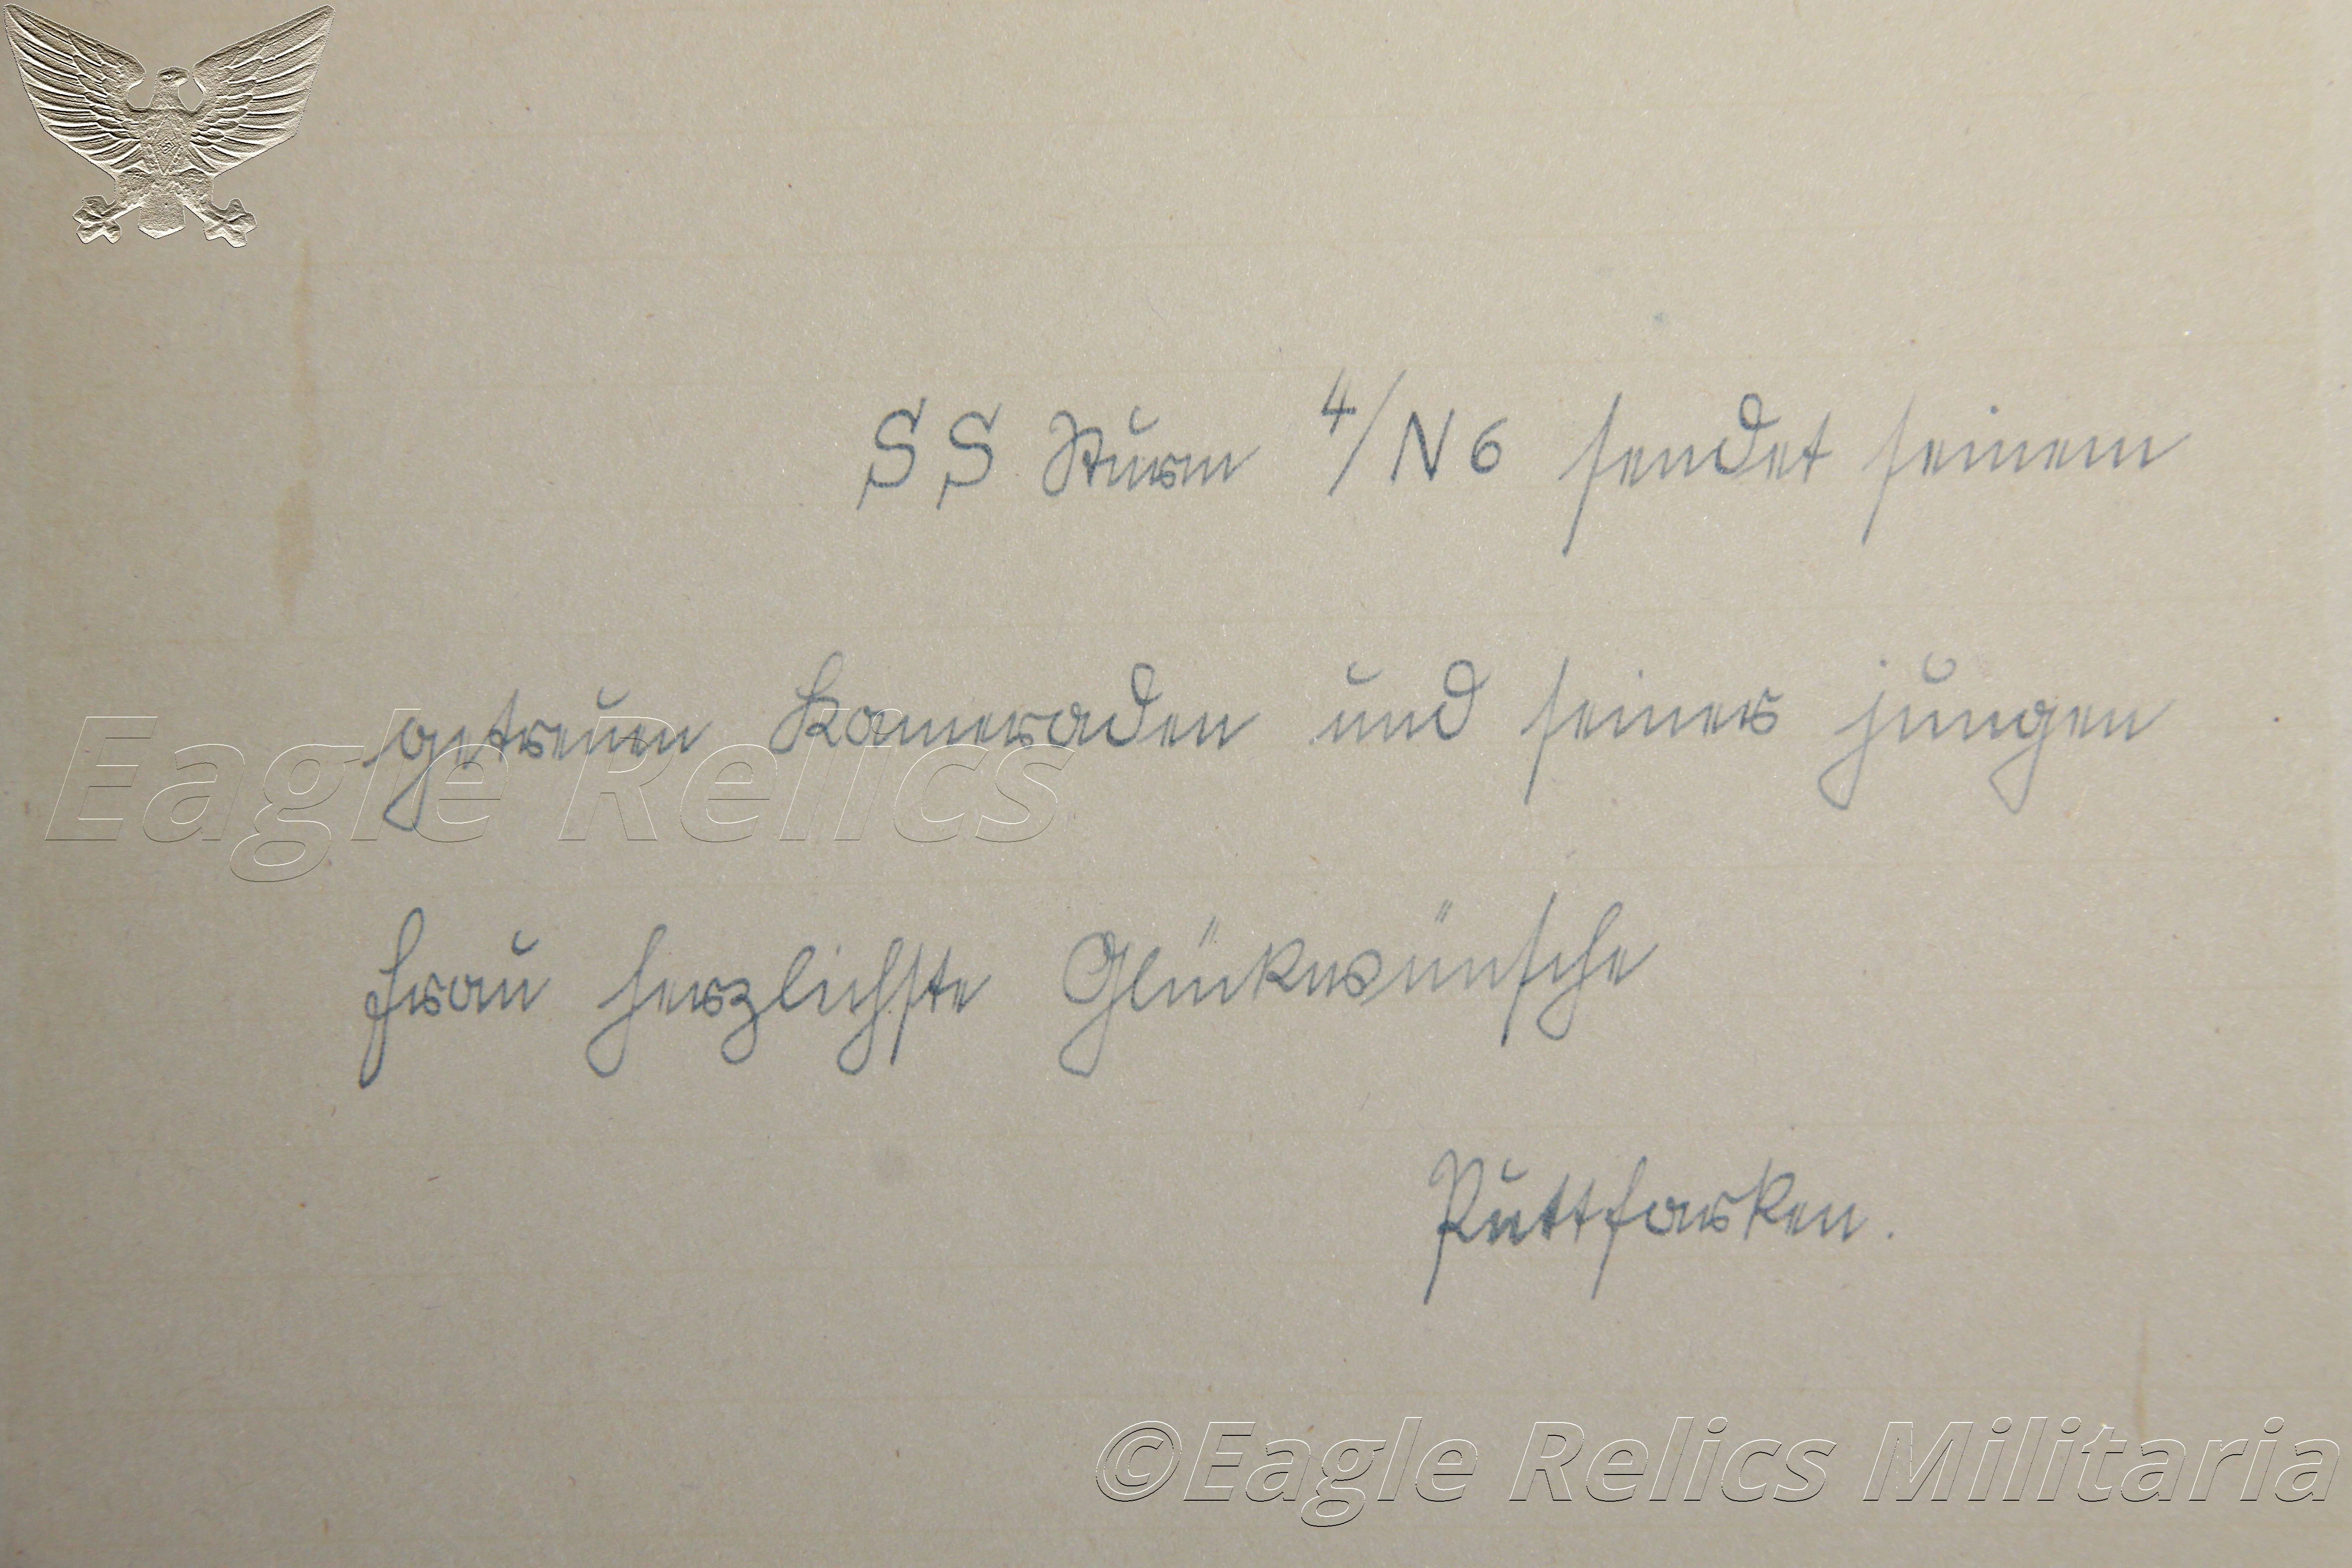 SS Sturm 4/N6 sendet seinem
getreuen Kameraden und seiner jungen
Frau herzlichste Glückwünsche
Puttfarken.
Eagle Relics
©Eagle Relics Militaria